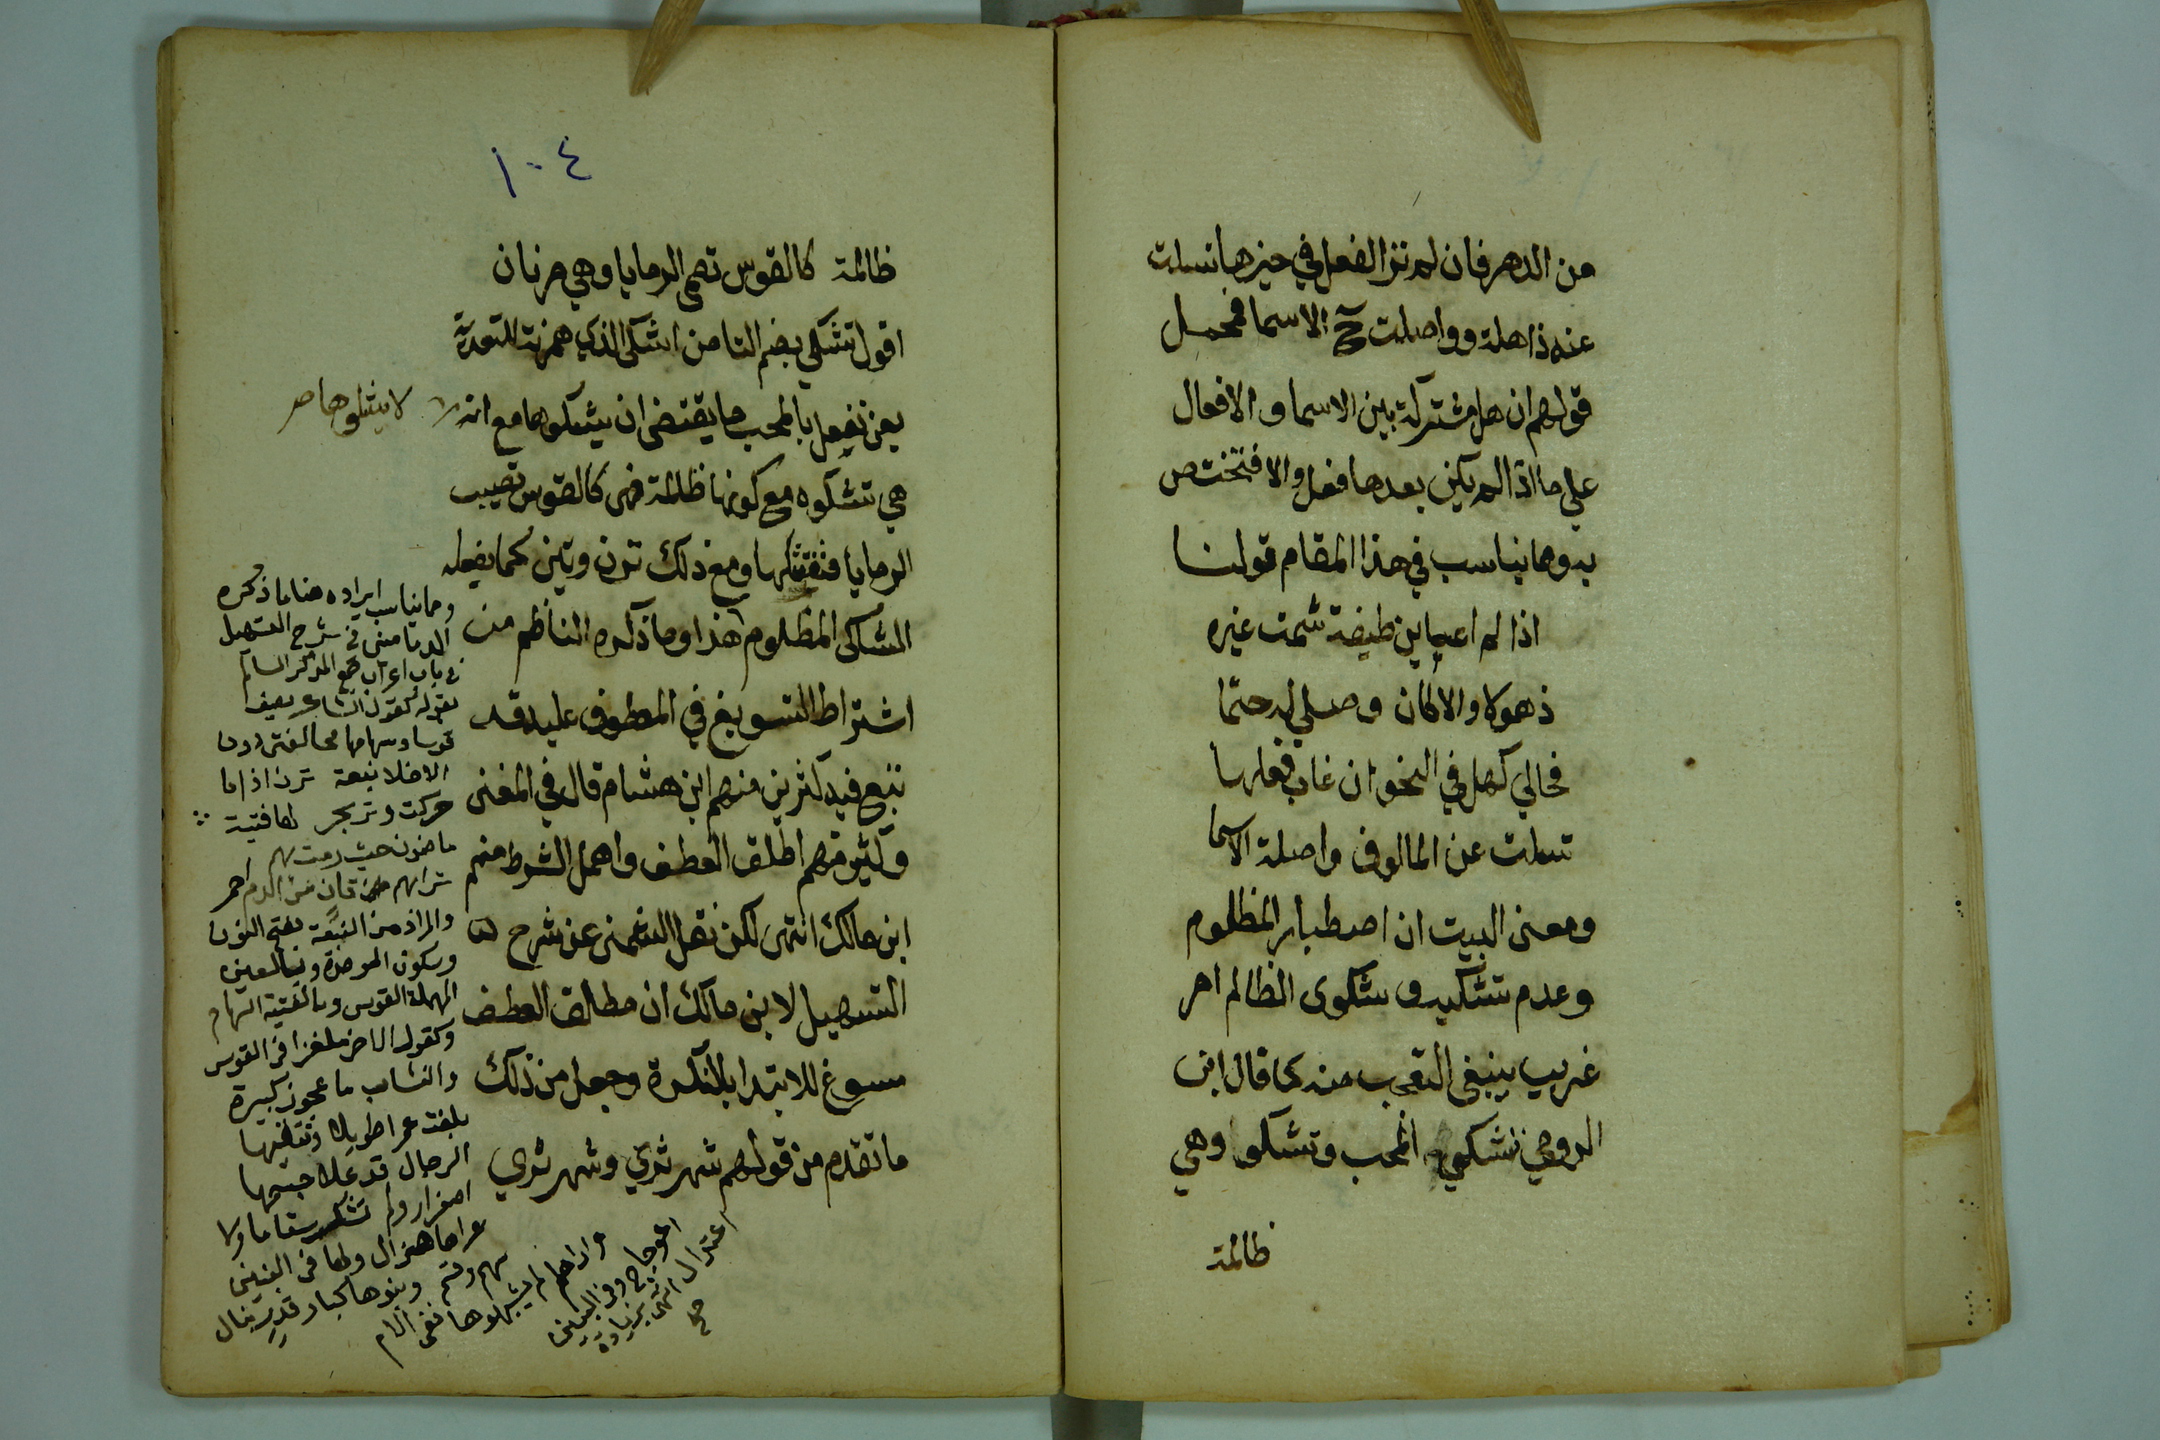 من الدهر فان لم تر الفعل في حيزها تسلت
عنه ذاهلة وواصلت ح الاسما فمحمل
قولهم ان هل مشتركة بين الاسما والافعال
علي ما اذا لم يكن بعدها فعل والا فتختص
به ومما يناسب في هذا المقام قولنا
اذا لم اعاين طيفة شمت غيره
ذهولا والا كان وصلي له حتما
فحالي كهل في النحو ان غاب فعلها
تسلت عن المالوف واصلة الاسما
ومعنى البيت ان اصطبار المظلوم
وعدم تشكيه وشكوى الظالم امر
غريب ينبغي التعجب منه كما قال ابن
الرومي تشكي المحب وتشكوا وهي
ظالمة
١٠٤
ظالمة كالقوس تصمي الرمايا وهي مرنان
اقول تشكي بضم التا من اشكى الذي همزته للتعدية
يعني تفعل بالمحب ما يقتضى ان يشكوها مع انه لا
لا يشكوها صح
هي تشكوه مع كونها ظالمة فهى كالقوس تصيب
الرمايا ومع ذلك ترن وتئن كما يفعله
المشاكى المظلوم هذا وما ذكره الناظم من
اشتراط التسويغ في المعطوف عليه قد
تبع فيه كثيرين منهم ابن هشام قال في المغنى
وكثير منهم اطلق العطف واهمل الشرط منهم
ابن مالك انتهى لكن نقل الشمنى عن شرح
التسهيل لابن مالك ان مطلق العطف
مسوغ للابتدا بالنكرة وجعل من ذلك
ما تقدم من قولهم شهر ثرى وشهر ثري
ومما يناسب ايراده هنا ما ذكره
الدمامينى في شرح التسهيل
في باب اعراب جمع المذكر السالم
بقوله كقول الشاعر يصف
قوسا وسهامها
الا نبعة ترن اذا ما
حركت وتزجر لها فتية
ماضون حيث رمت بهم
شرابهم قان من الدم احمر
والمراد من النبعة بفتح النون
وسكون الموحدة وبالعين
المهملة القوس وبالفتية السهام
وكقول الاخر ملغزا في القوس
والنشاب ما عجوز كبيرة
بلغت عمرا طويلا وتتقيها
الرجال قد علا جسمها
اصفرار ولم تشك سقاما ولا
عراها هزال ولها في البنين
سهم وقسم وبنوها كبار قدر نبال
واراهم لم يشبهوها ففى الام
اعوجاج وفي البنين
اعتدال انتهى بزيادة
صح